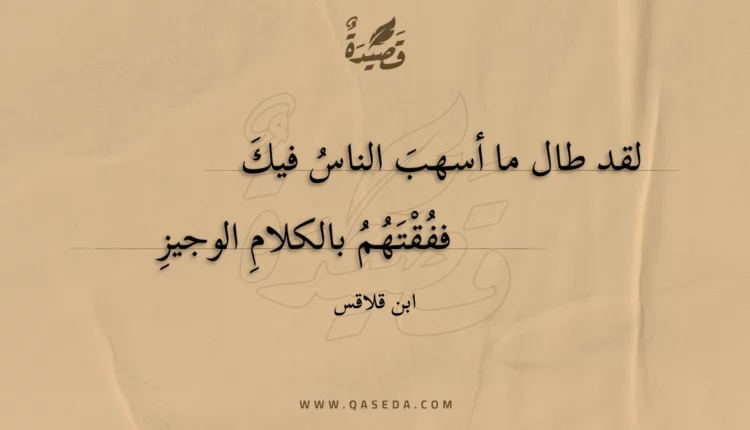 قَصِيدَةٌ
لقد طال ما أسهبَ الناسُ فيكَ
ففُقْتَهُمُ بالكلامِ الوجيزِ
ابن قلاقس
WWW.QASEDA.COM